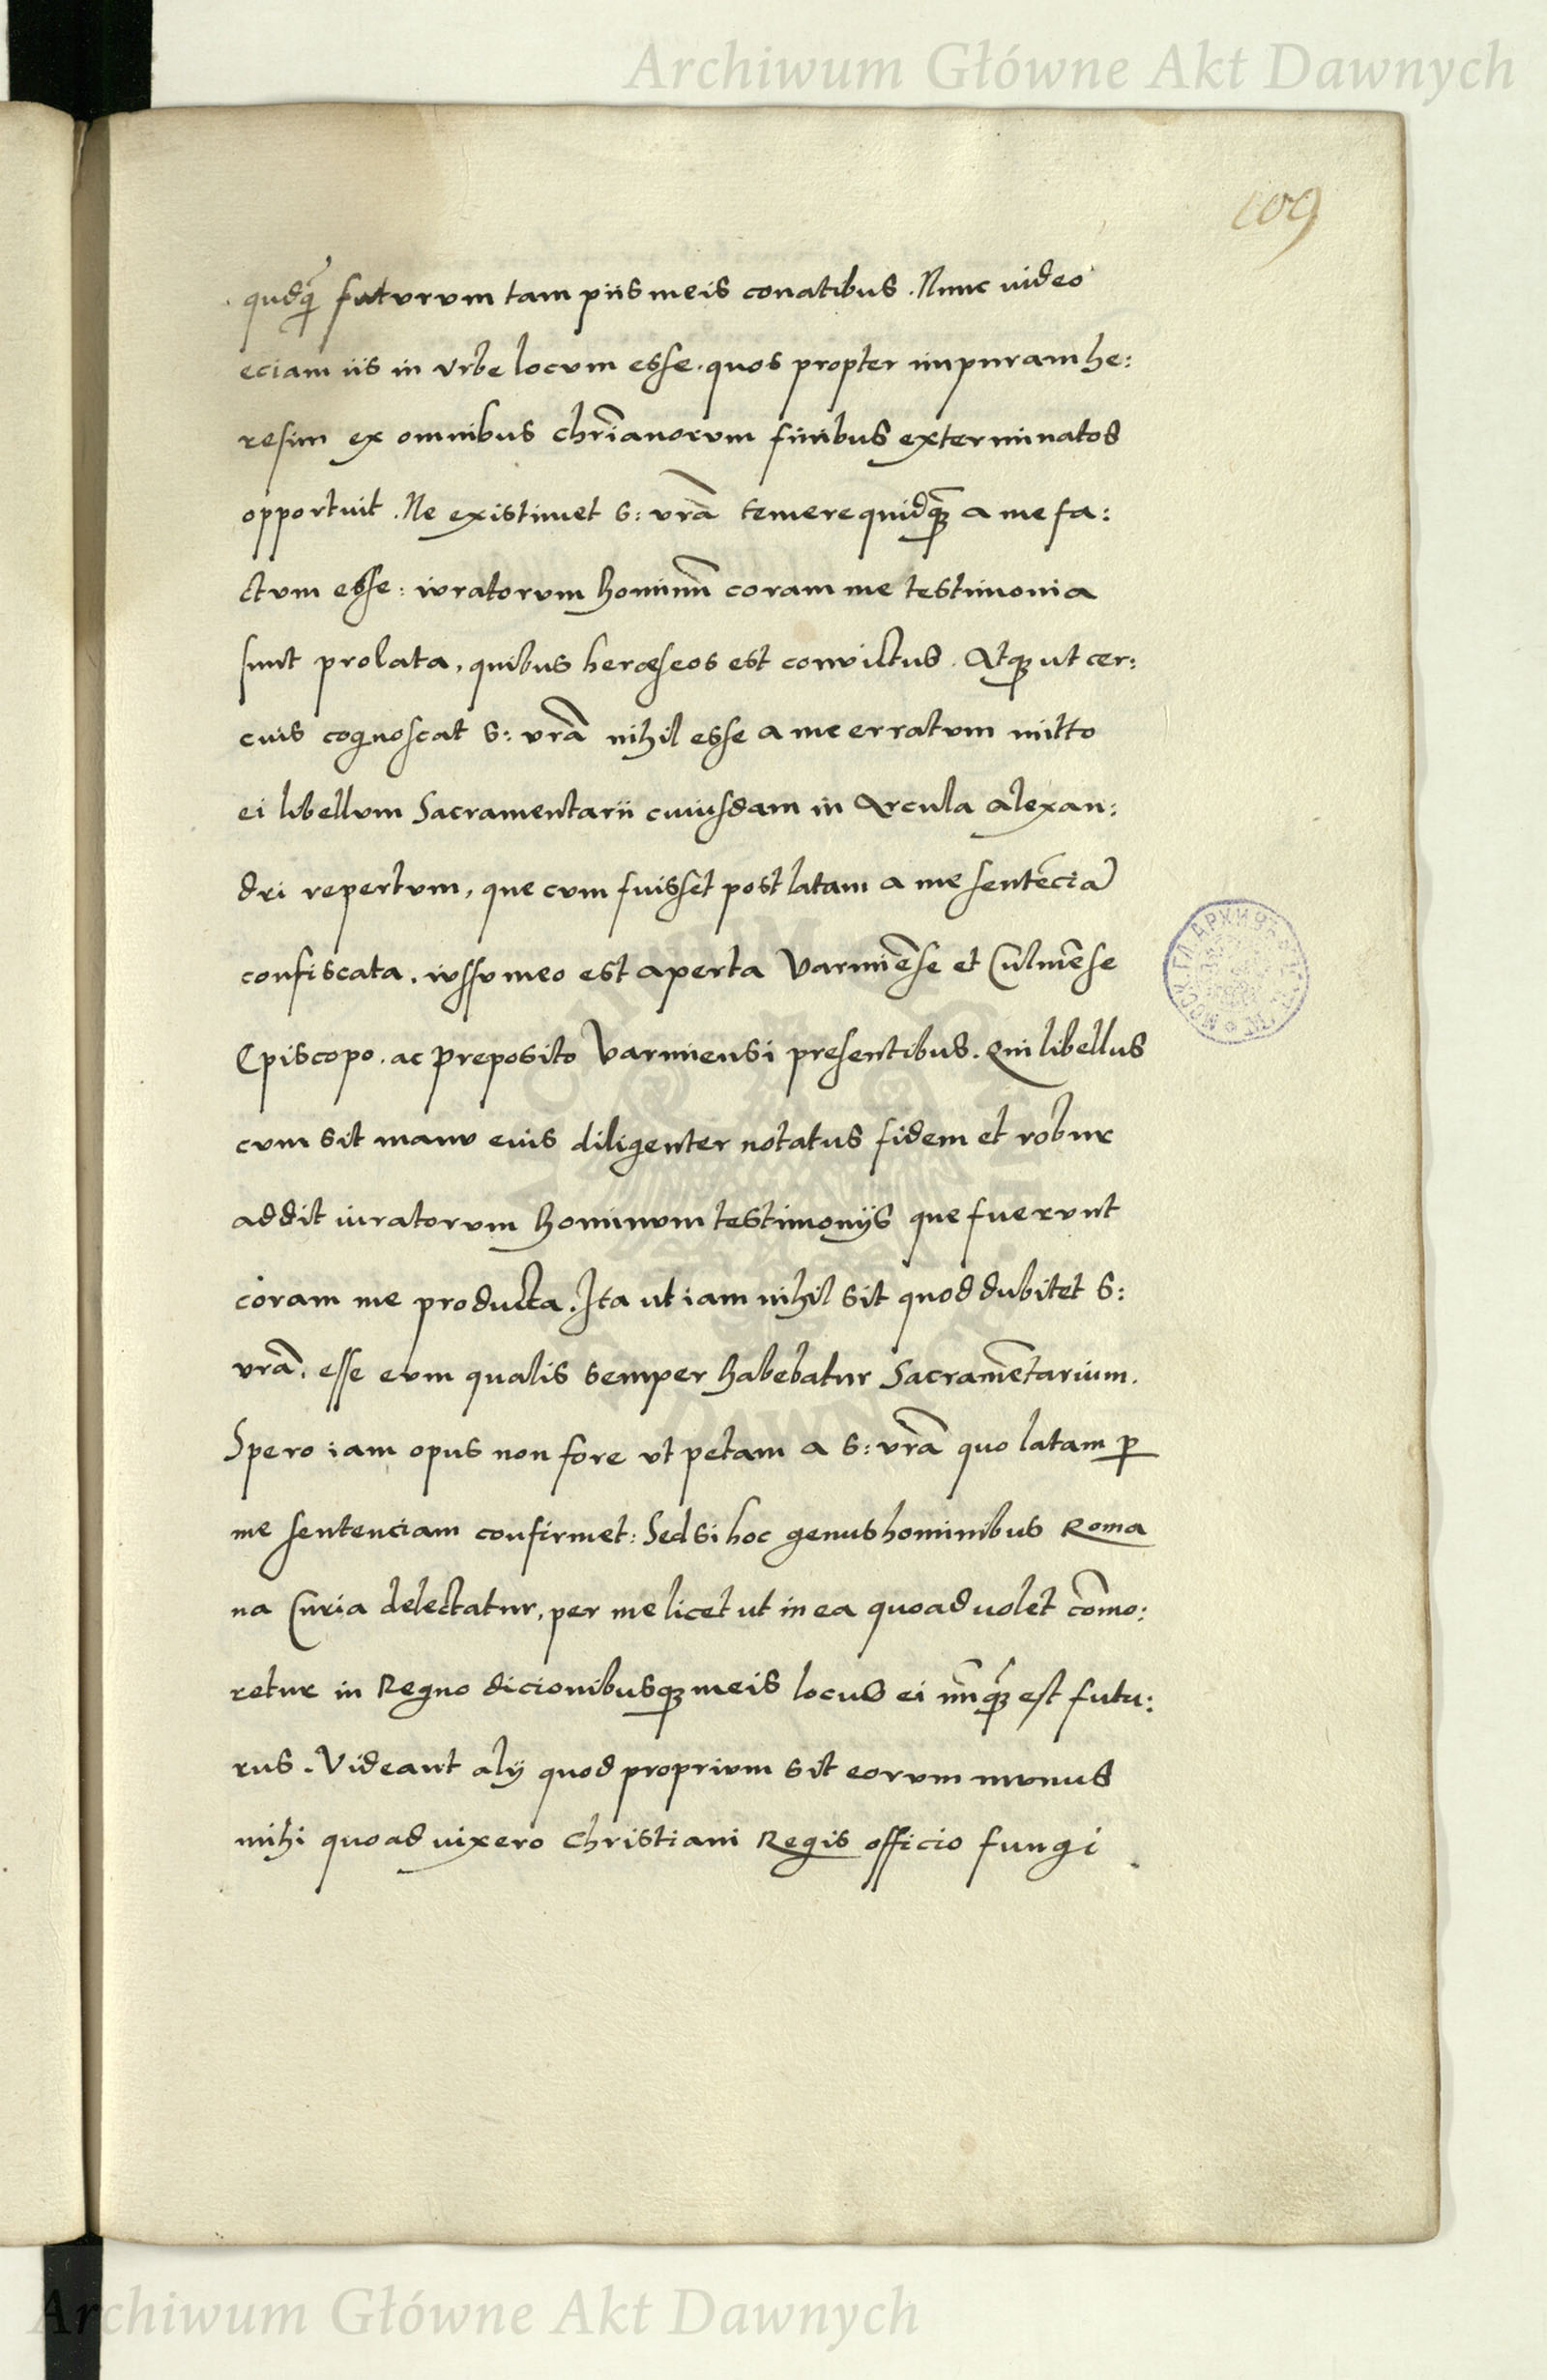 Archiwum Główne Akt Dawnych
109
qudq̃ futurum tam piis meis conatibus. Nunc video
eciam iis in urbe locum esse. quos propter impuram he:
resim ex omnibus chr̃ianorum finibus exterminatos
opportuit. Ne existimet S: vr̃a temere quidq̃ a me fa:
ctum esse: iuratorum hominũ coram me testimonia
sunt prolata, quibus heræseos est convictus. Atq; ut cer:
cius cognoscat S: vr̃a nihil esse a me erratum mitto
ei libellum Sacramentarii cuiusdam in Arcula Alexan:
dri repertum, que cum fuisset post latam a me sentēciā
confiscata. iussu meo est aperta Varmiēse et Culmēse
Episcopo. ac Preposito Varmiensi presentibus. Qui libellus
cum sit manu eius diligenter notatus fidem et robur
addit iuratorum hominum testimonijs que fuerunt
coram me producta. Ita ut iam nihil sit quod dubitet S:
vr̃a. esse eum qualis semper habebatur Sacramētarium.
Spero iam opus non fore ut petam a S: vr̃a quo latam p̱
me sentenciam confirmet: Sed si hoc genus hominibus Roma
na Curia delectatur, per me licet ut in ea quoad volet cōmo:
retur in Regno dicionibusq; meis locus ei nūq̃ est futu:
rus. Videant alij quod proprium sit eorum munus
mihi quoad vixero Christiani Regis officio fungi.
Archiwum Główne Akt Dawnych